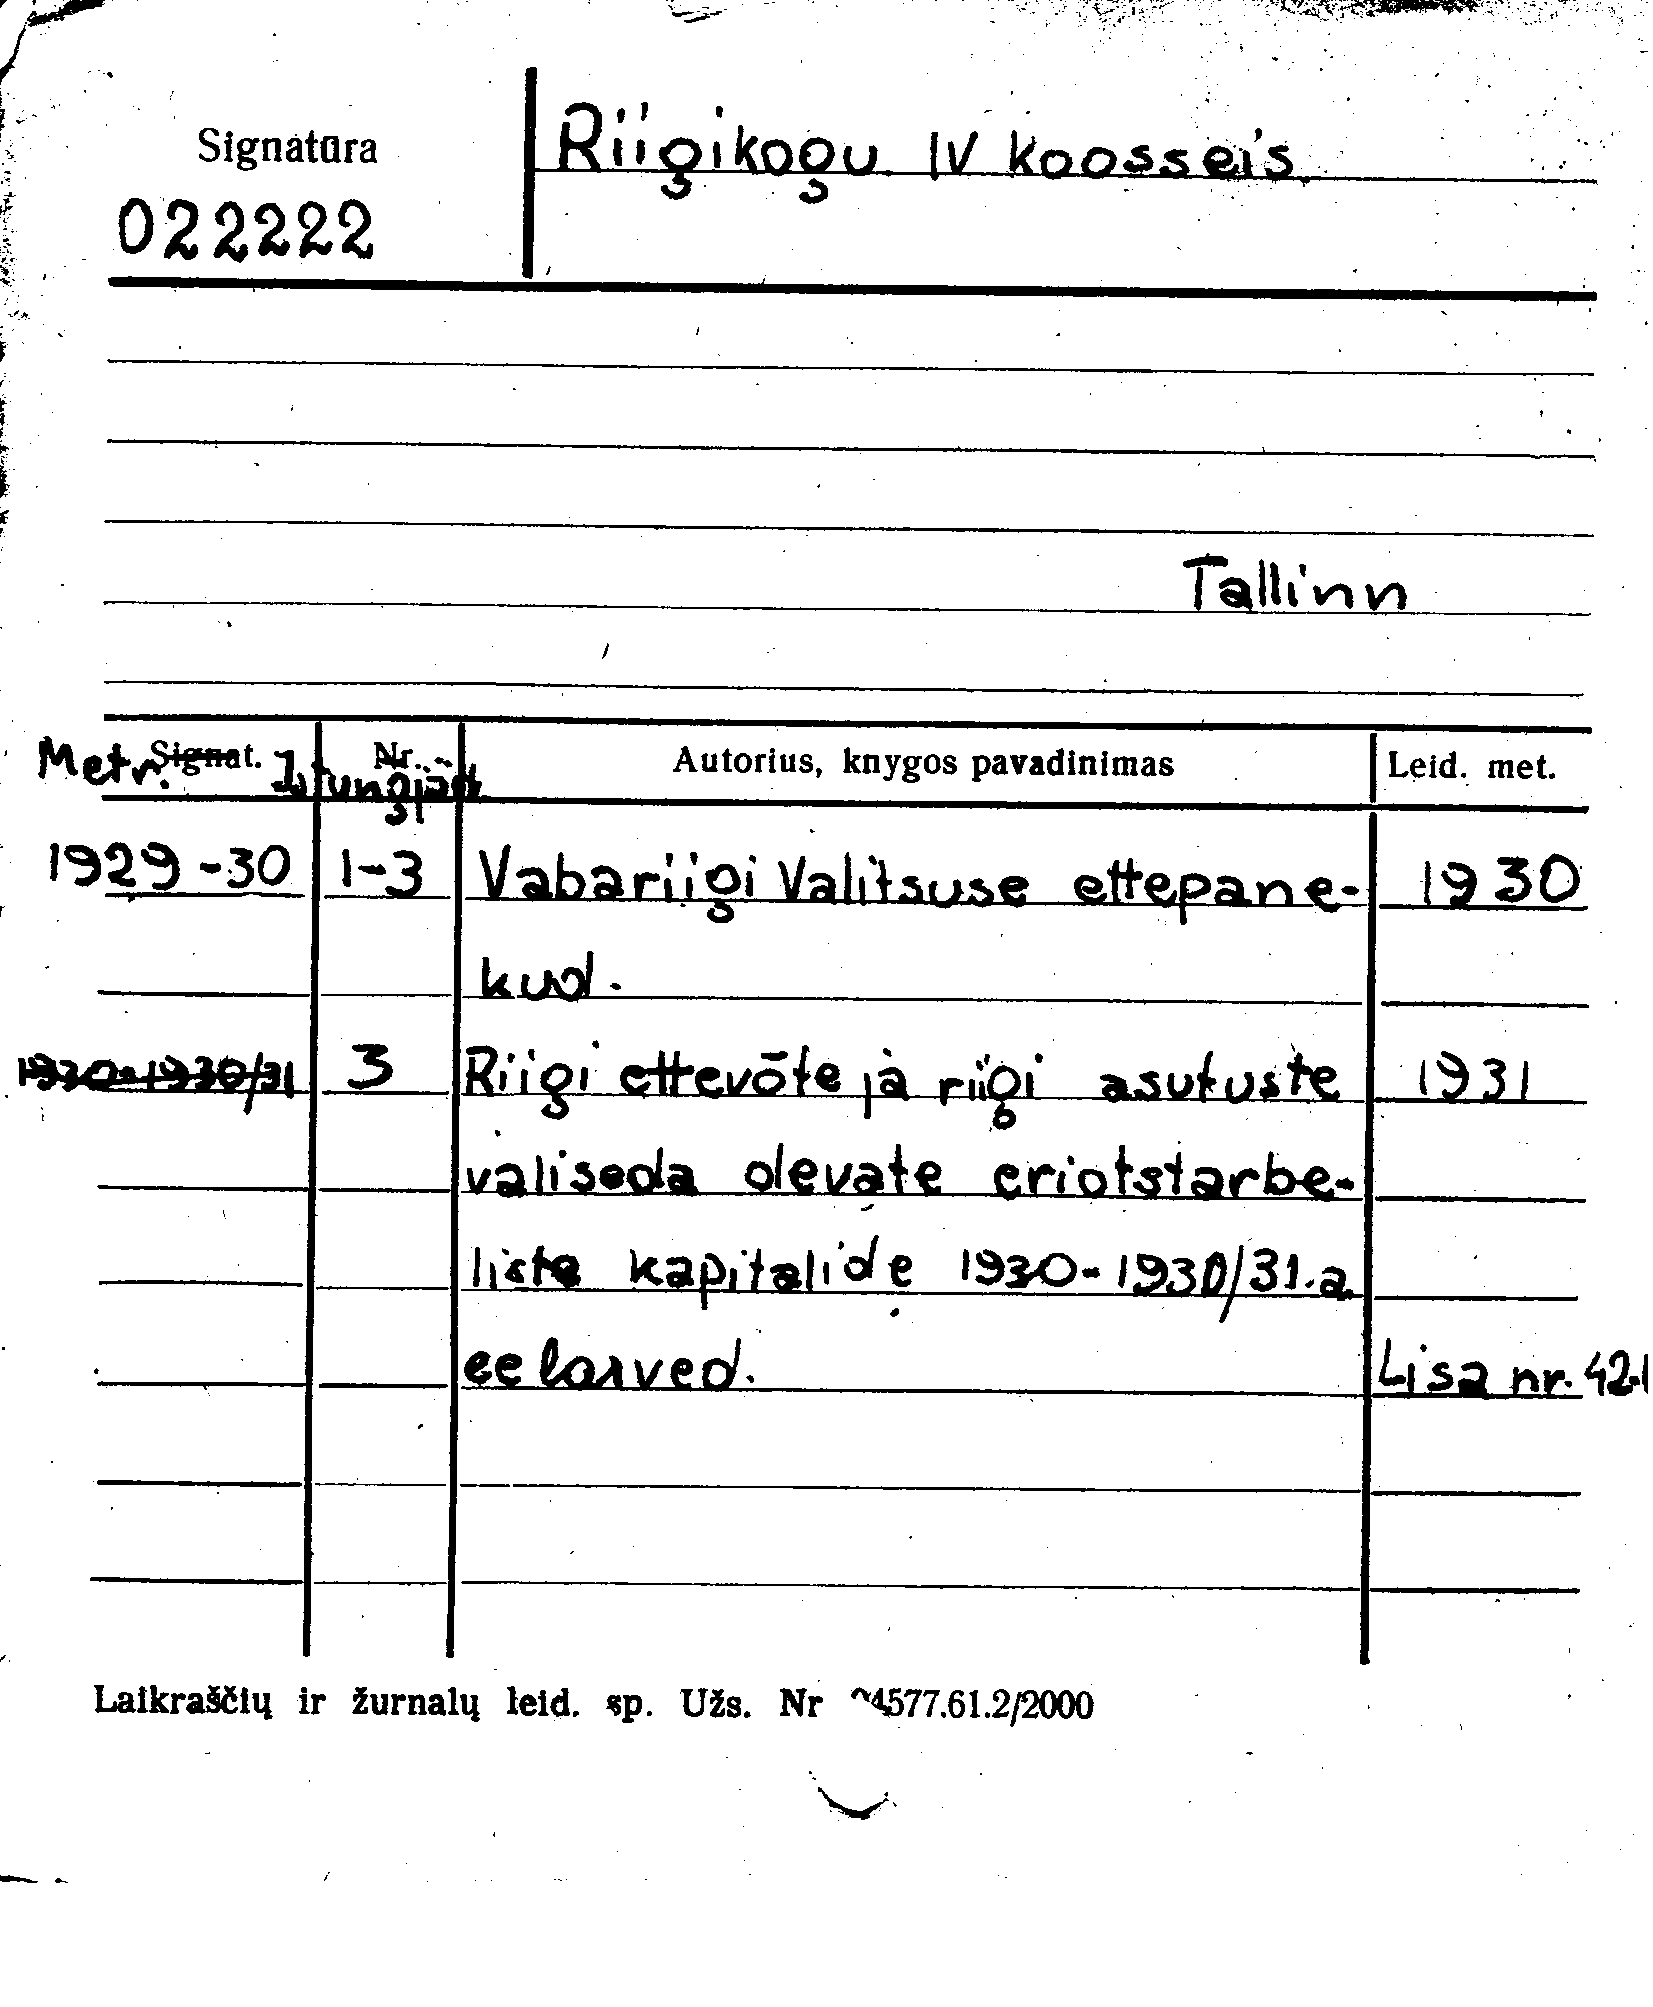 Signatūra
Riigikogu IV koosseis.
022222
Tallinn
Metr. Signat. Istungjärk Nr. Autorius, knygos pavadinimas Leid. met.
1929-30 1-3 Vabariigi Valitsuse ettepane- 1930
kud.
1930-1930/31 3 Riigi ettevõte ja riigi asutuste 1931
valiseda olevate eriotstarbe-
liste kapitalide 1930-1930/31.a.
eelarved. Lisa nr. 42.1
Laikraščių ir žurnalų leid. sp. Užs. Nr 4577.61.2/2000